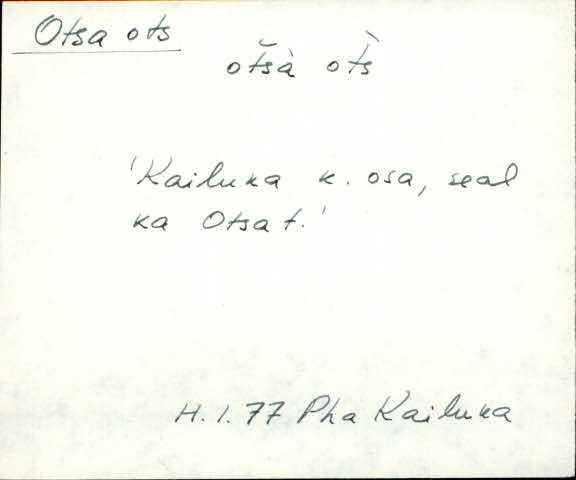 Otsa ots
otšà ots̀
'Kailuka k. osa, seal
ka Otsa t.'
H. I. 77 Pha Kailuka